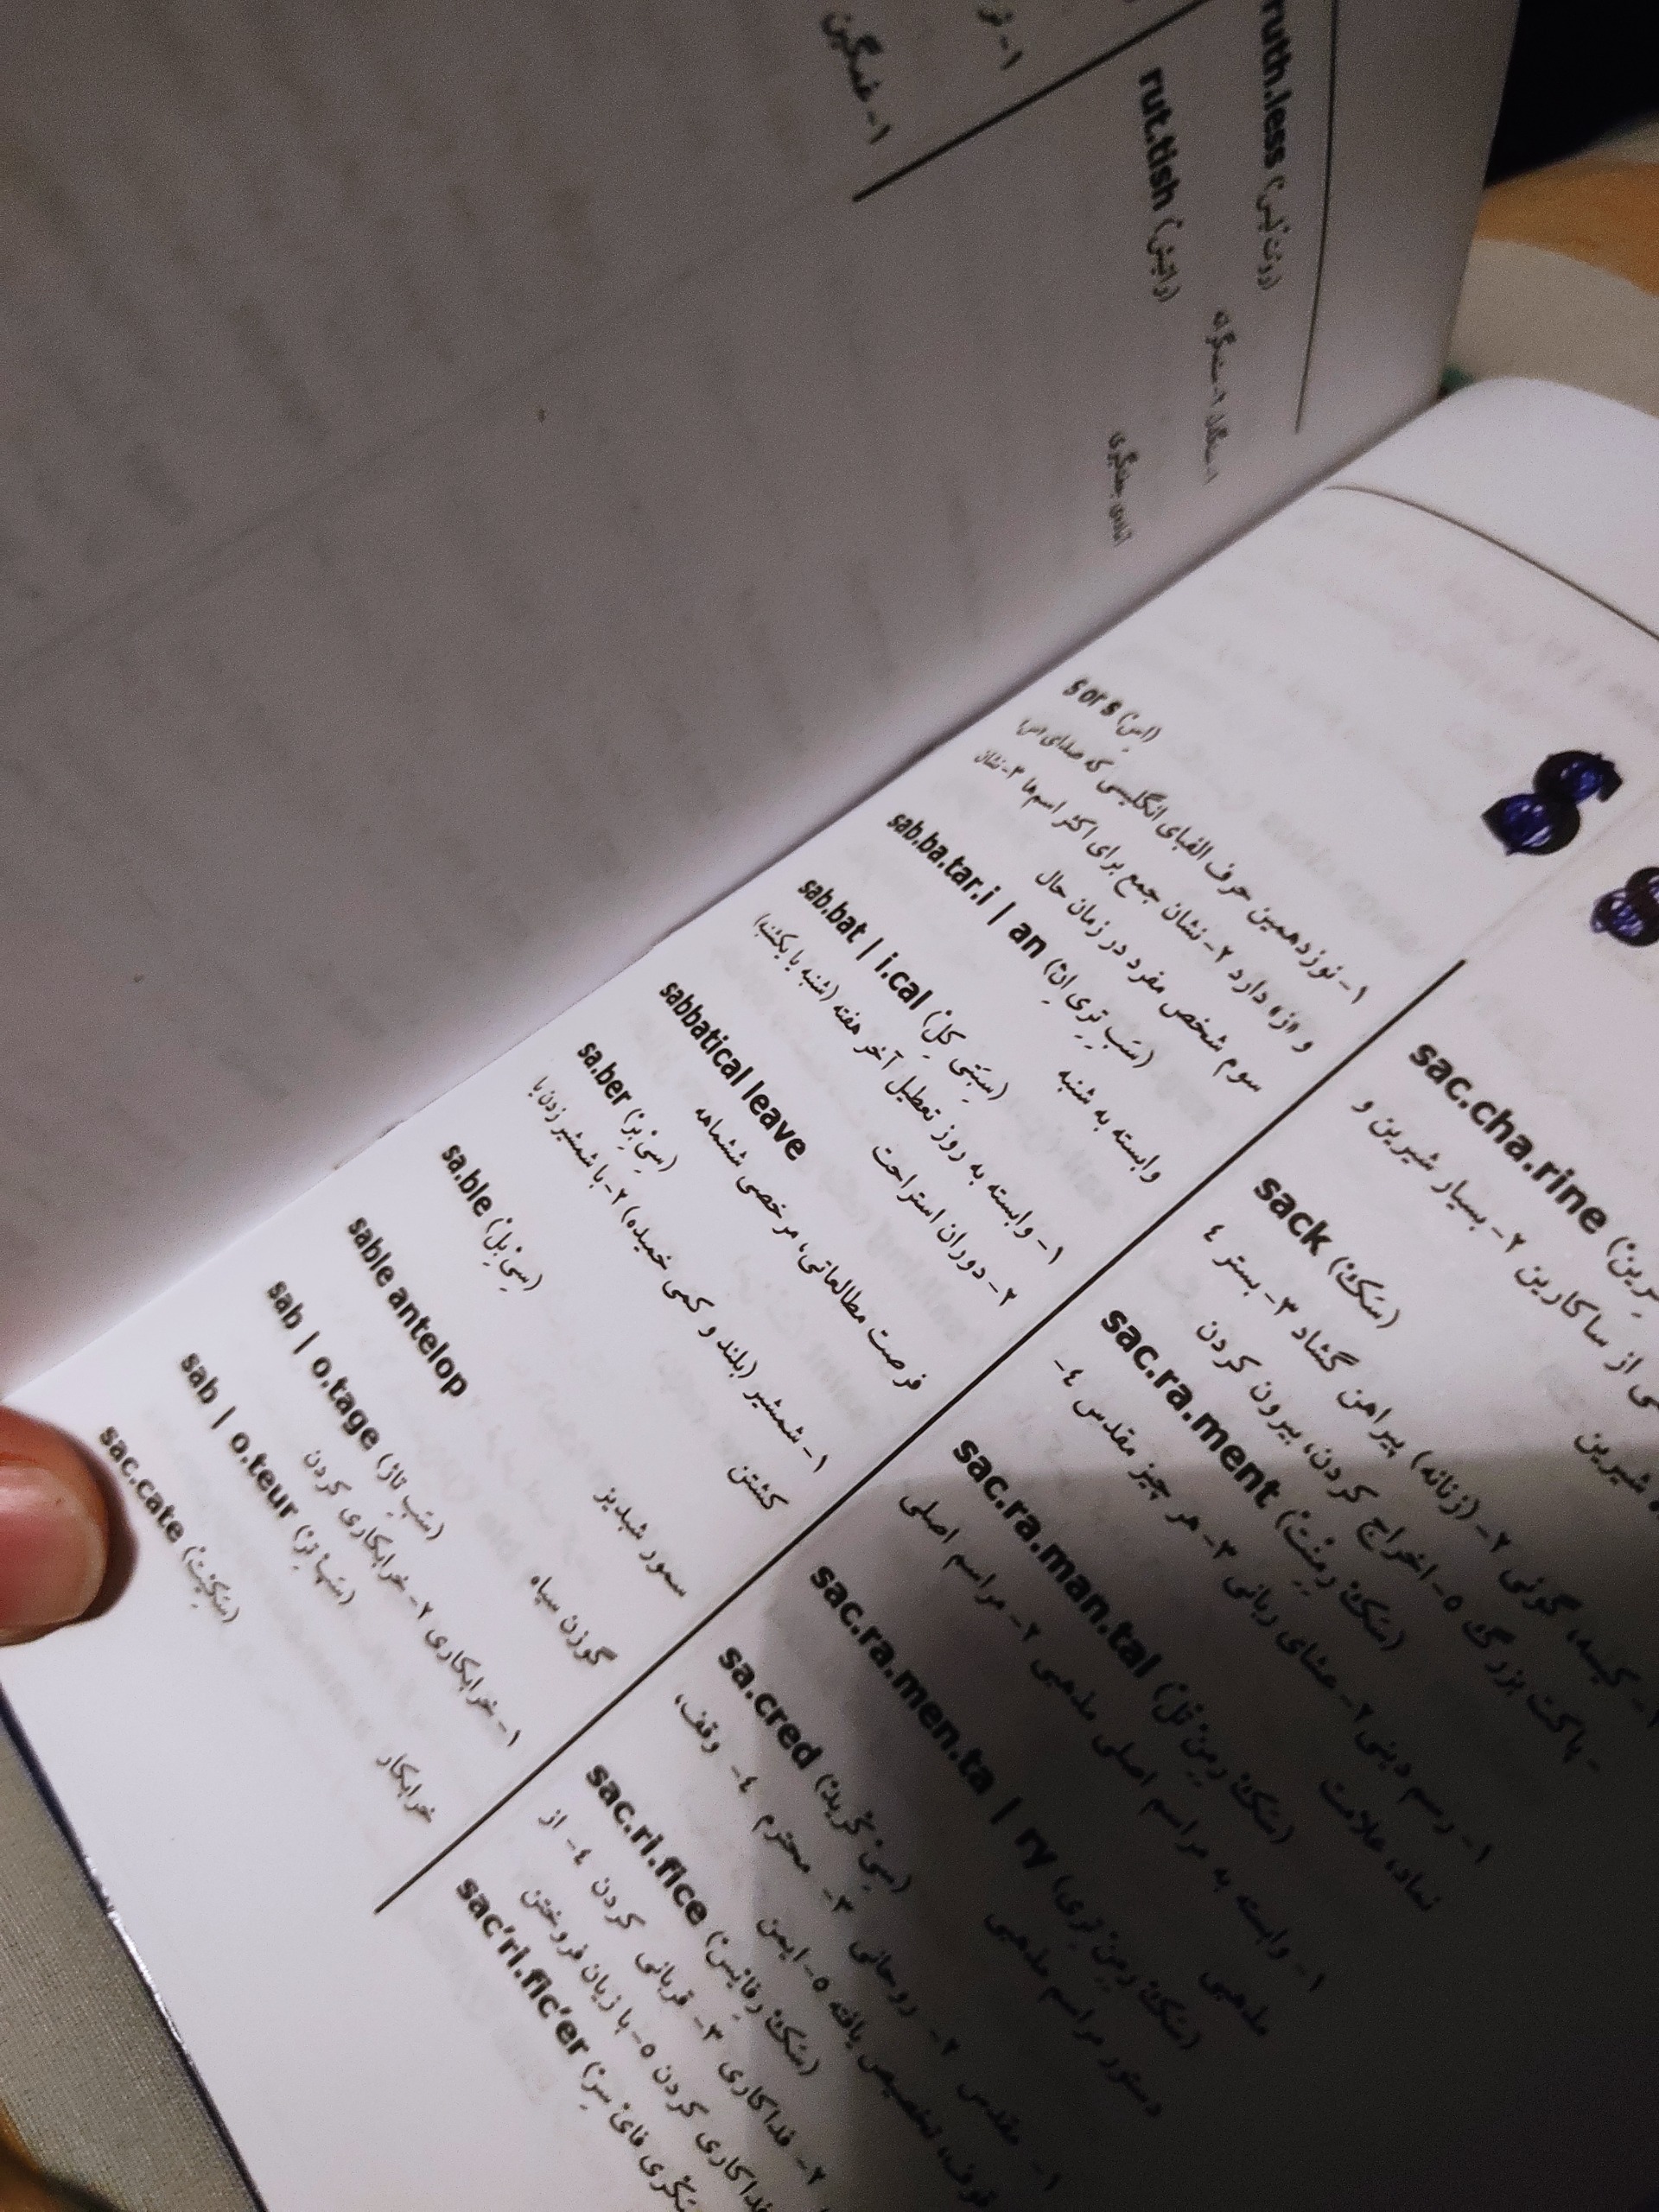 ruth.less
rut.tish (راتیش)
۱- سنگدل ۲- ستمگرانه
آماده‌ی جفتگیری
۱- غمگین
S
s or s (اِسْ)
۱- نوزدهمین حرف الفبای انگلیسی که صدای «س»
و «ز» دارد ۲- نشان جمع برای اکثر اسم‌ها ۳- نشان
سوم شخص مفرد در زمان حال
sab.ba.tar.i | an (سَب تِری اِنْ)
وابسته به شنبه
sab.bat | i.cal (سَبَتی کِلْ)
۱- وابسته به روز تعطیل آخر هفته (شنبه یا یکشنبه)
۲- دوران استراحت
sabbatical leave
فرصت مطالعاتی، مرخصی ششماهه
sa.ber (سِیْ بِرْ)
۱- شمشیر (بلند و کمی خمیده) ۲- با شمشیر زدن یا
کشتن
sa.ble (سِیْ بِلْ)
سمور شبدیز
sable antelop
گوزن سیاه
sab | o.tage (سَب تاژ)
۱- خرابکاری ۲- خرابکاری کردن
sab | o.teur (سَبا تِرْ)
خرابکار
sac.cate (سَکِیْتْ)
S
sac.cha.rine
ی از ساکارین ۲- بسیار شیرین و
شیرین
sack (سَکْ)
۱- کیسه، گونی ۲- (زنانه) پیراهن گشاد ۳- بستر ٤
- پاکت بزرگ ٥- اخراج کردن، بیرون کردن
sac.ra.ment (سَکْ رِمِنْتْ)
۱- رسم دینی ۲- عشای ربانی ۳- هر چیز مقدس ٤-
نماد، علامت
sac.ra.man.tal (سَکْ رِمِنْ تَلْ)
۱- وابسته به مراسم اصلی مذهبی ۲- مراسم اصلی
مذهبی
sac.ra.men.ta | ry (سَکْ رِمِنْ تِری)
دستور مراسم مذهبی
sa.cred (سِیْ کْرِیدْ)
۱- مقدس ۲- روحانی ۳- محترم ٤- وقف،
تخصیص یافته ٥- ایمن
sac.ri.fice (سَکْ رِفایْسْ)
۲- فداکاری ۳- قربانی کردن ٤- از
فداکاری کردن ٥- با زیان فروختن
sac'ri.fic'er